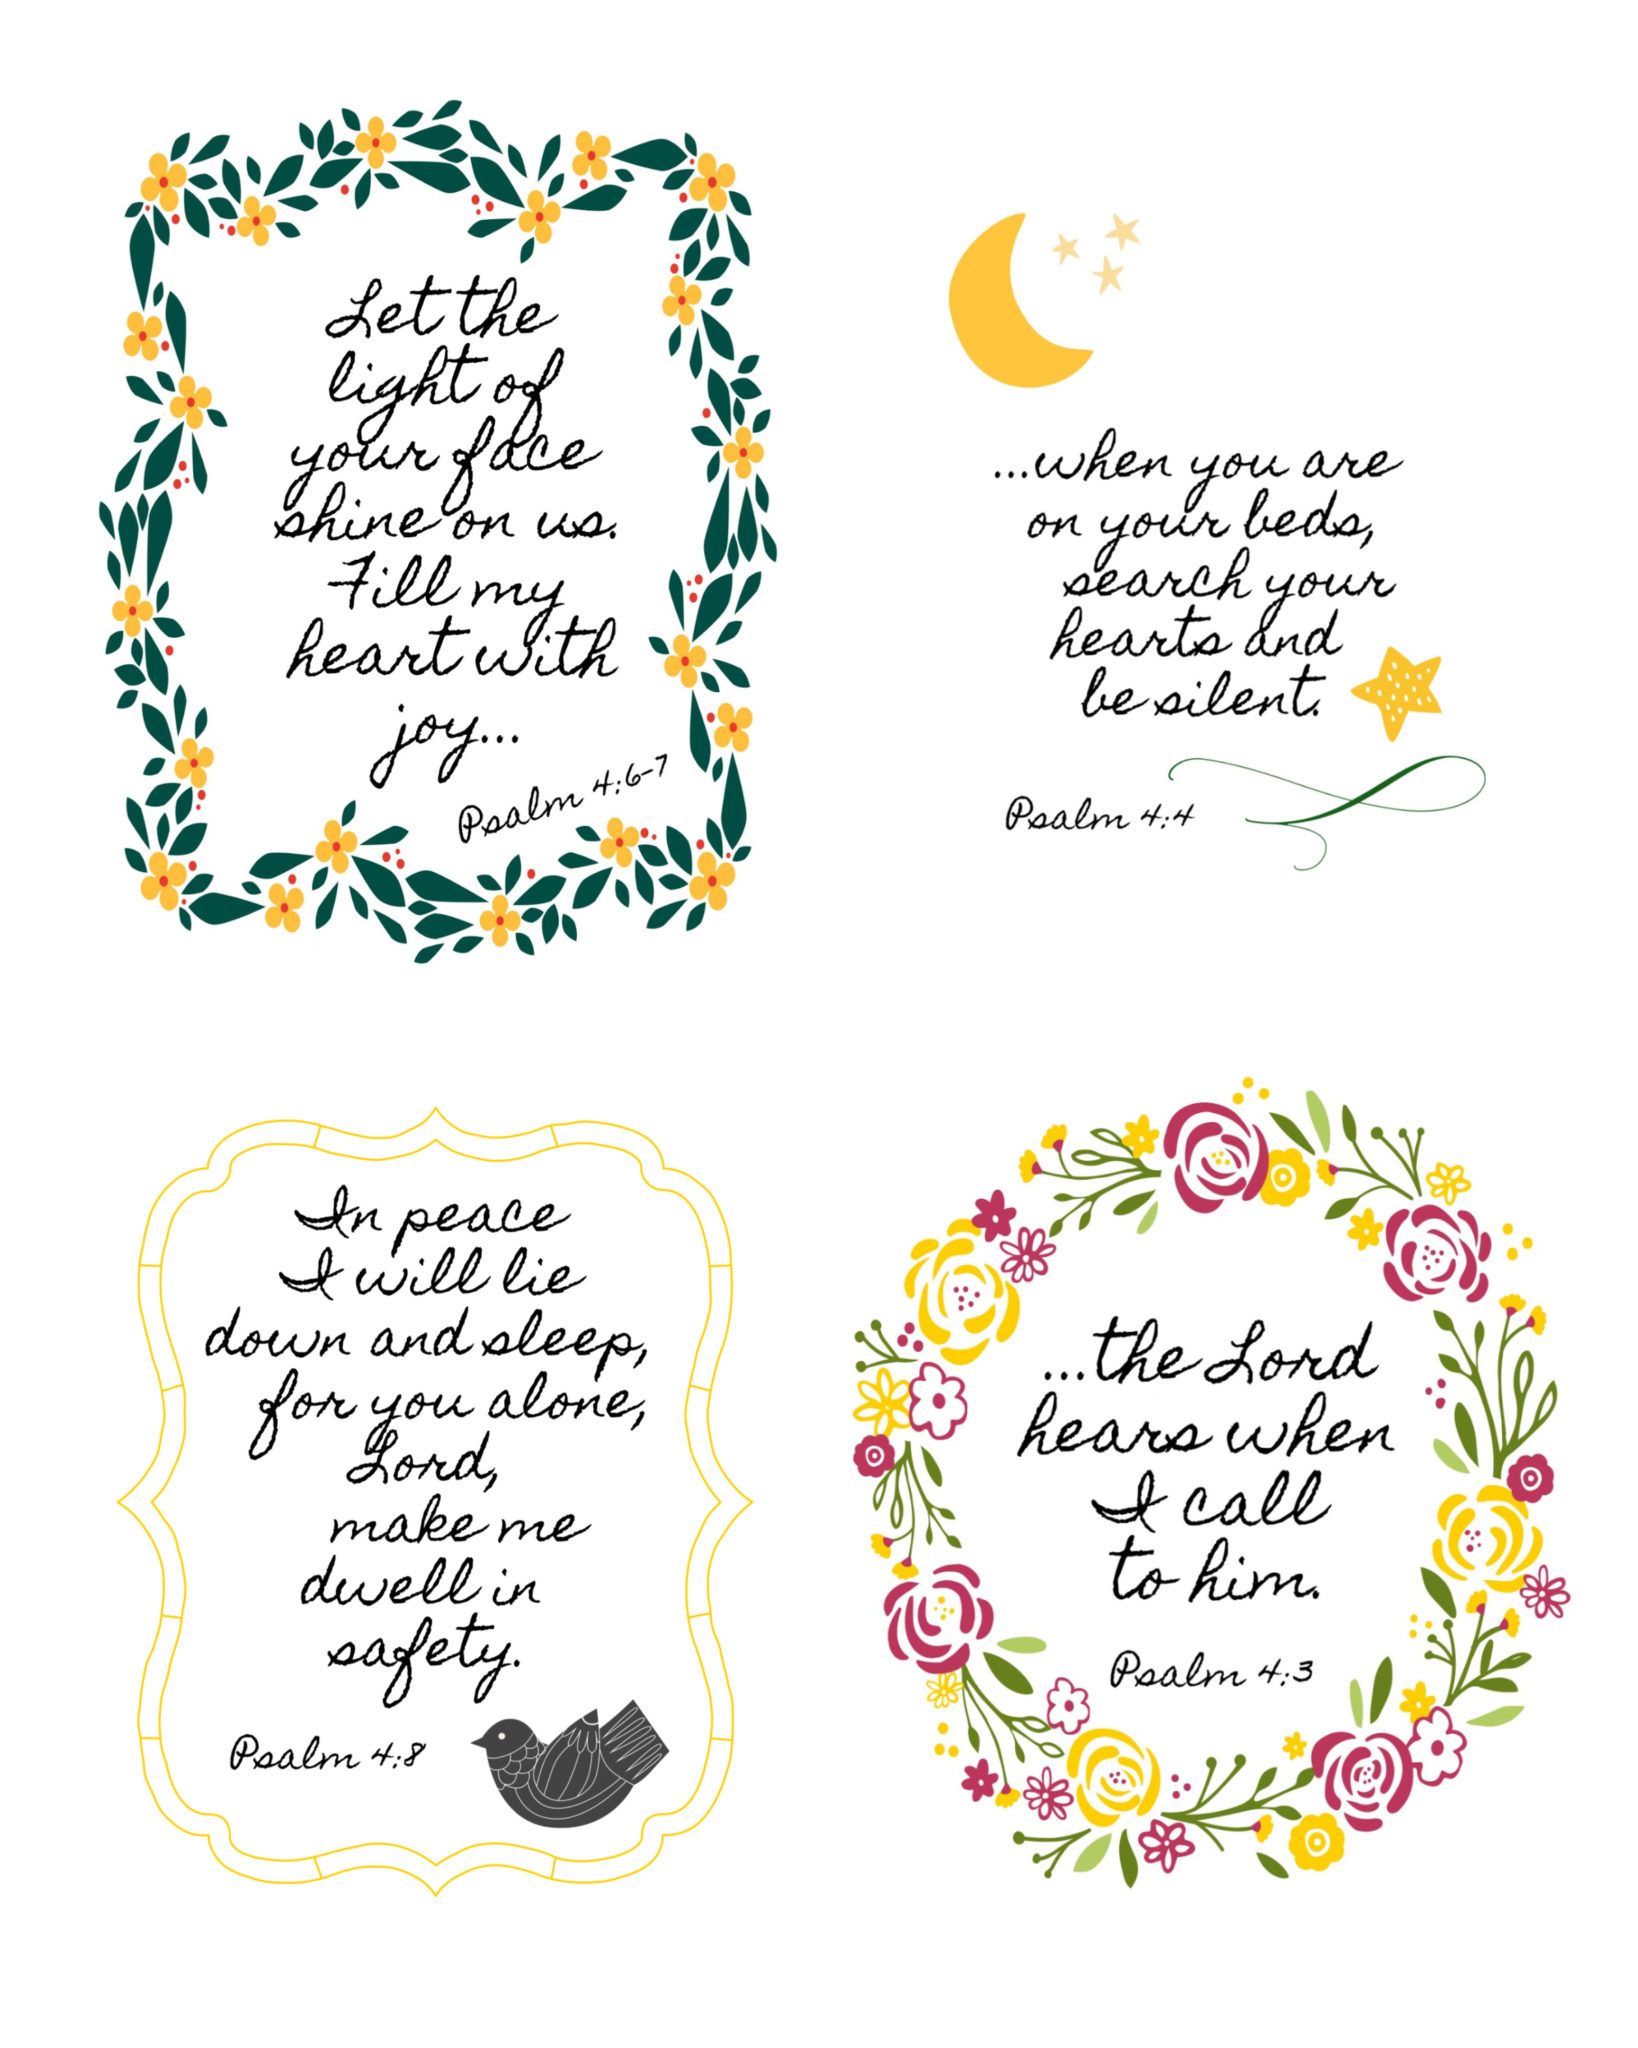 Let the
light of
your face
shine on us.
Fill my
heart with
joy...
Psalm 4:6-7
...when you are
on your beds,
search your
hearts and
be silent.
Psalm 4:4
In peace
I will lie
down and sleep,
for you alone,
Lord,
make me
dwell in
safety.
Psalm 4:8
...the Lord
hears when
I call
to him.
Psalm 4:3